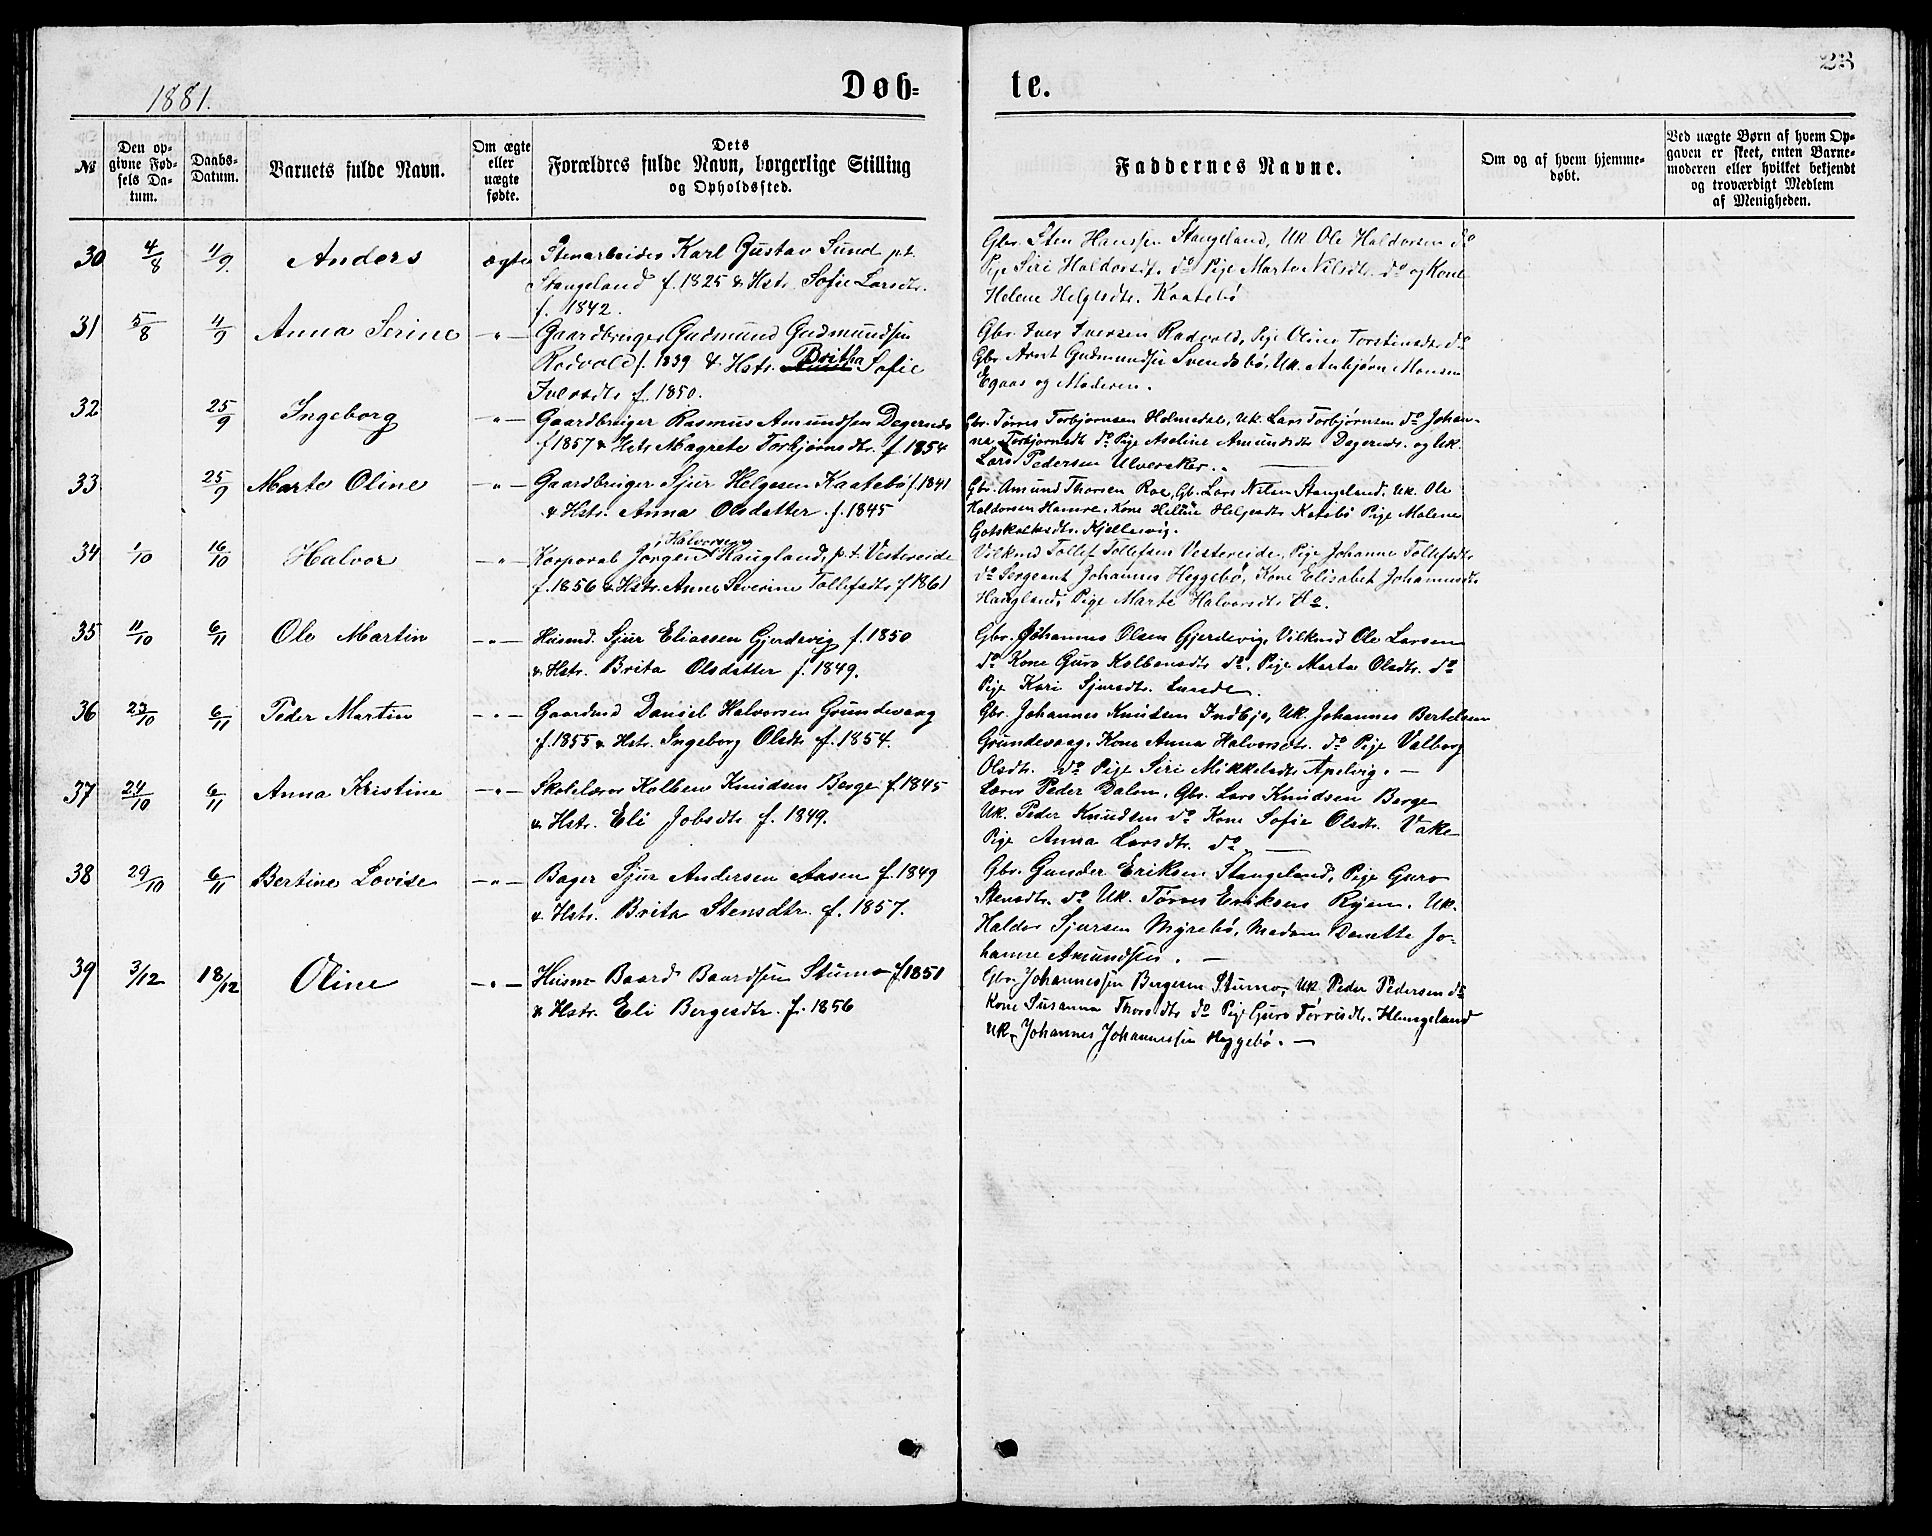 1881.
Døb-
te.
23
№
Den op-
givne Fød-
sels Da-
tum.
Daabs-
Datum.
Barnets fulde Navn.
Om ægte
eller
uægte
fødte.
Dets
Forældres fulde Navn, borgerlige Stilling
og Opholdssted.
Faddernes Navne.
Om og af hvem hjemme-
døbt.
Ved uægte Børn af hvem Op-
gaven er skeet, enten Barne-
moderen eller hvilket bekjendt
og troværdigt Medlem
af Menigheden.
30 4/8 11/9. Anders ægte
Stenarbeider Karl Gustav Sund p.t.
Stangeland f. 1825 & Hstr. Sofie Larsdtr.
f. 1842.
Gbr. Sten Hanssen Stangeland, Uk. Ole Haldorsen do
Pige Siri Haldorsd. do Pige Marta Nilsdtr. do og Kone
Helene Helgesdtr. Kaatebø
31 5/8 11/9 Anna Serine -"-
Gaardbruger Gudmund Gudmundsen
Britha
Rodvold f. 1839 & Hstr. Sofie
Iversdtr f. 1850.
Gbr. Iver Iversen Rodvold, Pige Oline Torstinsdtr. do
Gbr. Arnt Gudmundsen Svendsbø, Uk. Anbjørn Monsen
Egaas og Moderen.
32 25/9 Ingeborg -"-
Gaardbruger Rasmus Amundsen Dagernes
f 1857 & Hstr Magrete Torbjørnsdtr. f. 1854
Gbr. Tørres Torbjørnsen Holmedal, Uk. Lars Torbjørnsen do Johan-
ne Torbjørnsdt do Pige Aseline Amundsdtr Dagernes. og Uk.
Lars Pedersen Ulveraker. -
33 25/9 Marte Oline -"-
Gaardbruger Sjur Helgesen Kaatebø f. 1841
& Hstr. Anna Olsdatter. f. 1845
Gbr. Amund Thorsen Roe, Gb. Lars Nilsen Stangeland, Uk. Ole
Haldorsen Hamre, Kone Helene Helgesdtr Katebø Pige Malene
Gotskalksdtr. Kjellesvig.
34 1/10 16/10 Halvor -"-
Halvorsen
Korporal Jørgen Haugland, p.t. Vestereide
f. 1856 & Hstr. Anne Severine Tollefsdtr f 1861
Vilkmd Tollef Tollefsen Vestereide, Pige Johanne Tollefsdtr
do Sergeant Johannes Heggebø, Kone Elisabet Johannesdtr
Haugland, Pige Marte Halvorsdtr do.
35 11/10 6/11 Ole Martin -"-
Husmd. Sjur Eliassen Gjerdevig f. 1850
& Hstr. Brita Olsdatter f. 1849.
Gbr. Johannes Olsen Gjerdevig, Vilkmd Ole Larsen
do Kone Guro Kolbensdtr do. Pige Marta Olsdtr. do
Pige Kari Sjursdtr. Lunde.
36 23/10 6/11 Peder Martin -"-
Gaardmd Daniel Halvorsen Grundevaag
f. 1855 & Hstr. Ingeborg Olsdtr f. 1854.
Gbr. Johannes Knutsen Indbjo, Uk. Johannes Bertelsen
Grundevaag. Kone Anna Halvorsdtr. do Pige Valborg
Olsdtr. do Pige Siri Mikkelsdtr Apelvig. -
37 24/10 6/11 Anna Kristine -"-
Skolelærer Kolben Knudsen Berge f. 1845
& Hstr. Eli Jobsdtr f. 1849.
Lærer Peder Dalen, Gbr. Lars Knudsen Berge
Uk. Peder Knudsen do Kone Sofie Olsdtr. Vake
Pige Anna Larsdtr. do -
38 29/10 6/11 Bertine Lovise -"-
Bager Sjur Andersen Aasen f. 1849
& Hstr. Brita Stensdtr. f. 1857.
Gbr. Gunder Eriksen Stangeland, Pige Guro
Stensdtr. do Uk. Tørres Eriksen Ryen. Uk.
Haldor Sjursen Myrebø, Madam Danette Jo-
hanne Amundsen. -
39 3/12 18/12 Oline -"-
Husm Baard Baardsen Stumo f. 1851
& Hstr. Eli Bergesdtr. f. 1856
Gbr. Johannessen Bergesen Stumo, Uk. Peder Pedersen do
Kone Susanna Thorsdtr do Pige Guro Tørrisdtr. Hengeland
Uk. Johannes Johannessen Heggebø. -